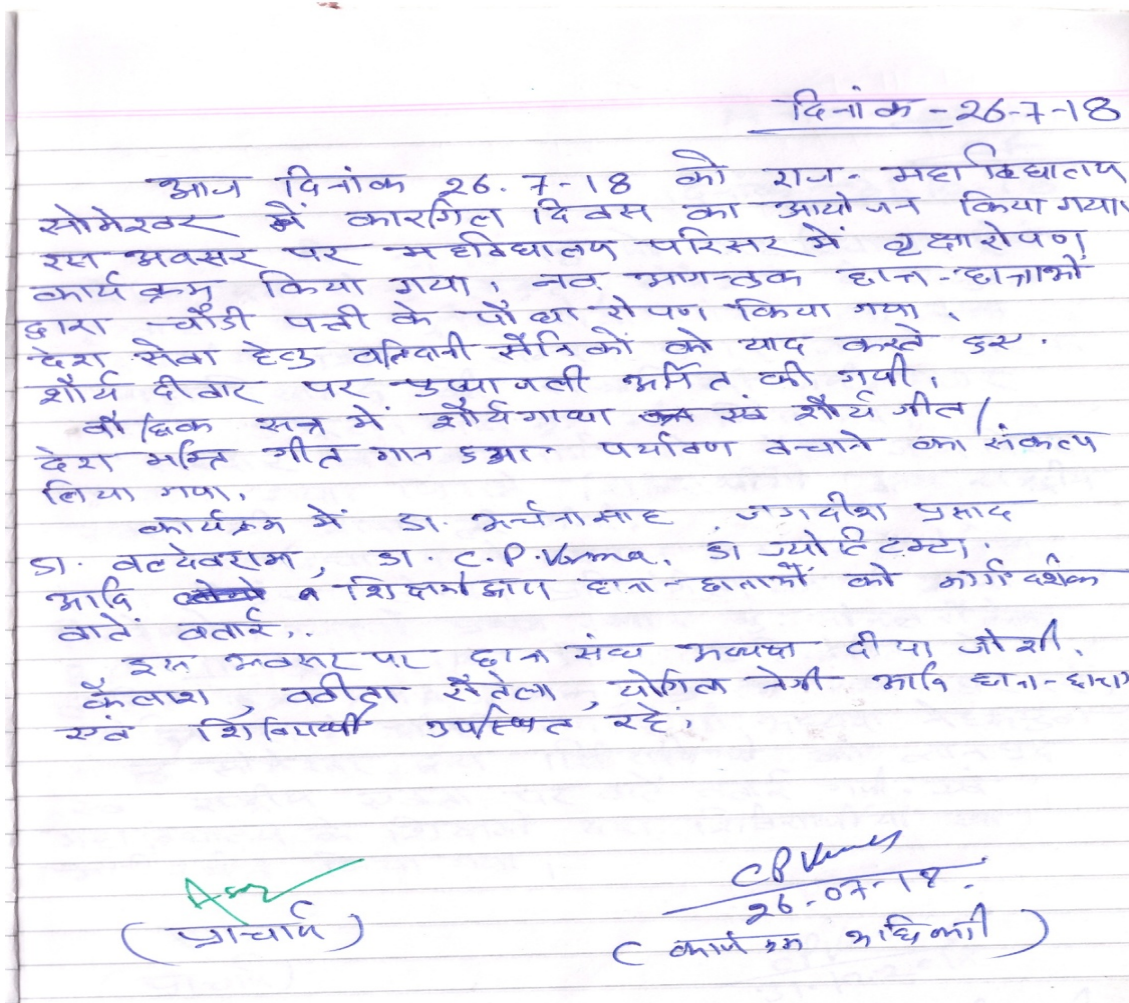 दिनांक - 26-7-18
आज दिनांक 26.7-18 को राज. महाविद्यालय
सोमेश्वर में कारगिल दिवस का आयोजन किया गया।
इस अवसर पर महाविद्यालय परिसर में वृक्षारोपण
कार्यक्रम किया गया। नव आगन्तुक छात्र-छात्राओं
द्वारा चौडी पत्ती के पौधा रोपण किया गया।
देश सेवा हेतु बलिदानी सैनिकों को याद करते हुए।
शौर्य दीवार पर पुष्पाजली अर्पित की गयी।
बौद्धिक सत्र में शौर्यगाथा एवं शौर्य गीत/
देश भक्ति गीत गान हुआ। पर्यावण बचाने का संकल्प
लिया गया।
कार्यक्रम में डा. अर्चना साह, जगदीश प्रसाद
डा. बल्देवराम, डा. C.P. Verma, डा ज्योति टम्टा.
आदि शिक्षकों द्वारा छात्र-छात्राओं को मार्गदर्शक
बातें बताई..
इस अवसर पर छात्र संघ अध्यक्ष दीपा जोशी,
कैलाश, सैतेला, नेगी आदि छात्र-छात्रा
एवं उपस्थित रहें।
CP Verma
26-07-18.
(प्राचार्य)
(कार्यक्रम अधिकारी)